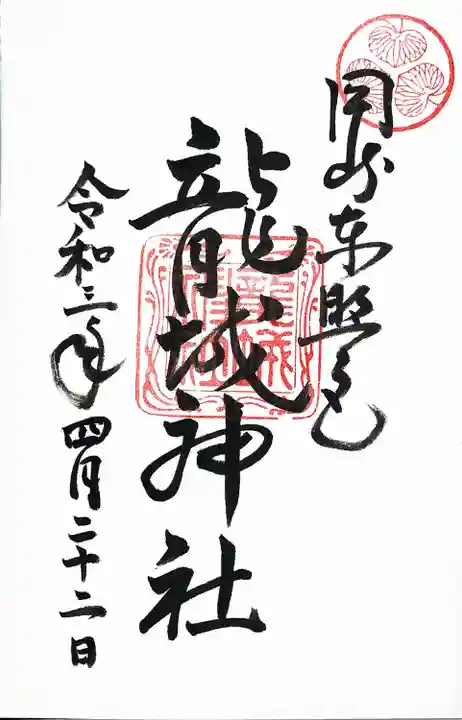 岡崎東照宮
龍城神社
令和三年四月二十二日